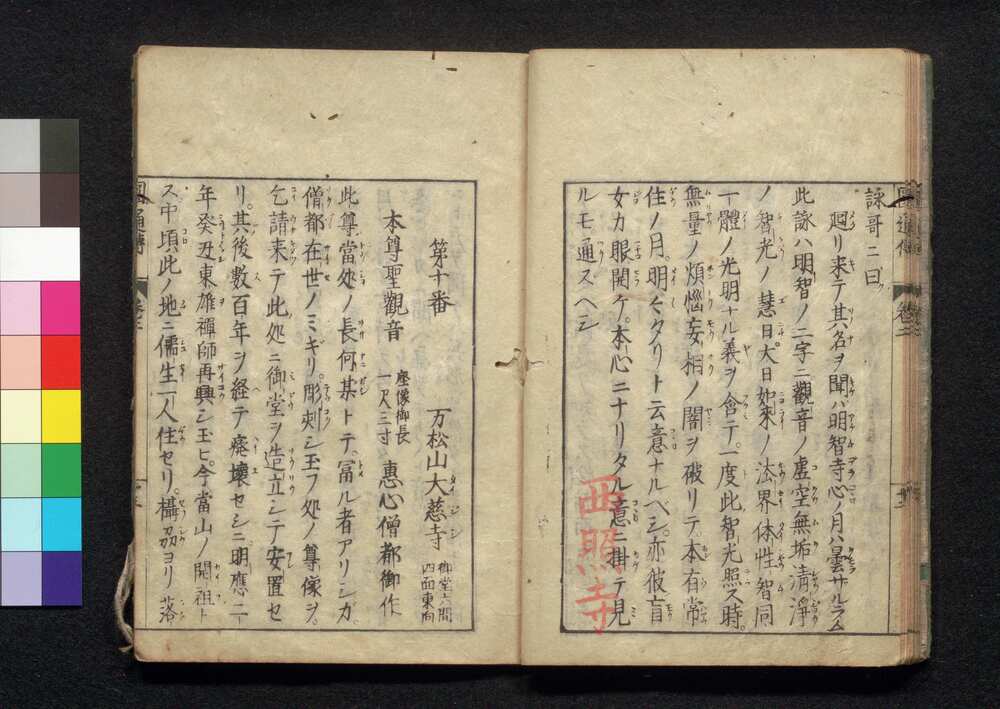 詠哥ニ曰
廻リ来テ其名ヲ聞バ明智寺心ノ月ハ曇サルラム
此詠ハ明智ノ二字ニ觀音ノ虚空無垢清淨
ノ智光ノ慧日大日如來ノ法界体性智同
一體ノ光明ナル義ヲ含テ一度此智光照ス時
無量ノ煩惱妄相ノ闇ヲ破リテ本有常
住ノ月明々タリト云意ナルベシ亦彼盲
女カ眼開ケ本心ニナリタル意ニ掛テ見
ルモ通スヘシ
西照寺
第十番 万松山大慈寺 御堂六間四面東向
本尊聖觀音 座像御長一尺三寸 惠心僧都御作
此尊當処ノ長何某トテ冨ル者アリシガ
僧都在世ノミギリ彫刻シ玉フ処ノ尊像ヲ
乞請来テ此処ニ御堂ヲ造立シテ安置セ
リ其後數百年ヲ経テ癈壞セシニ明應二
年癸丑東雄禪師再興シ玉ヒ今當山ノ開祖ト
ス中頃此ノ地ニ儒生一人住セリ攝刕ヨリ落